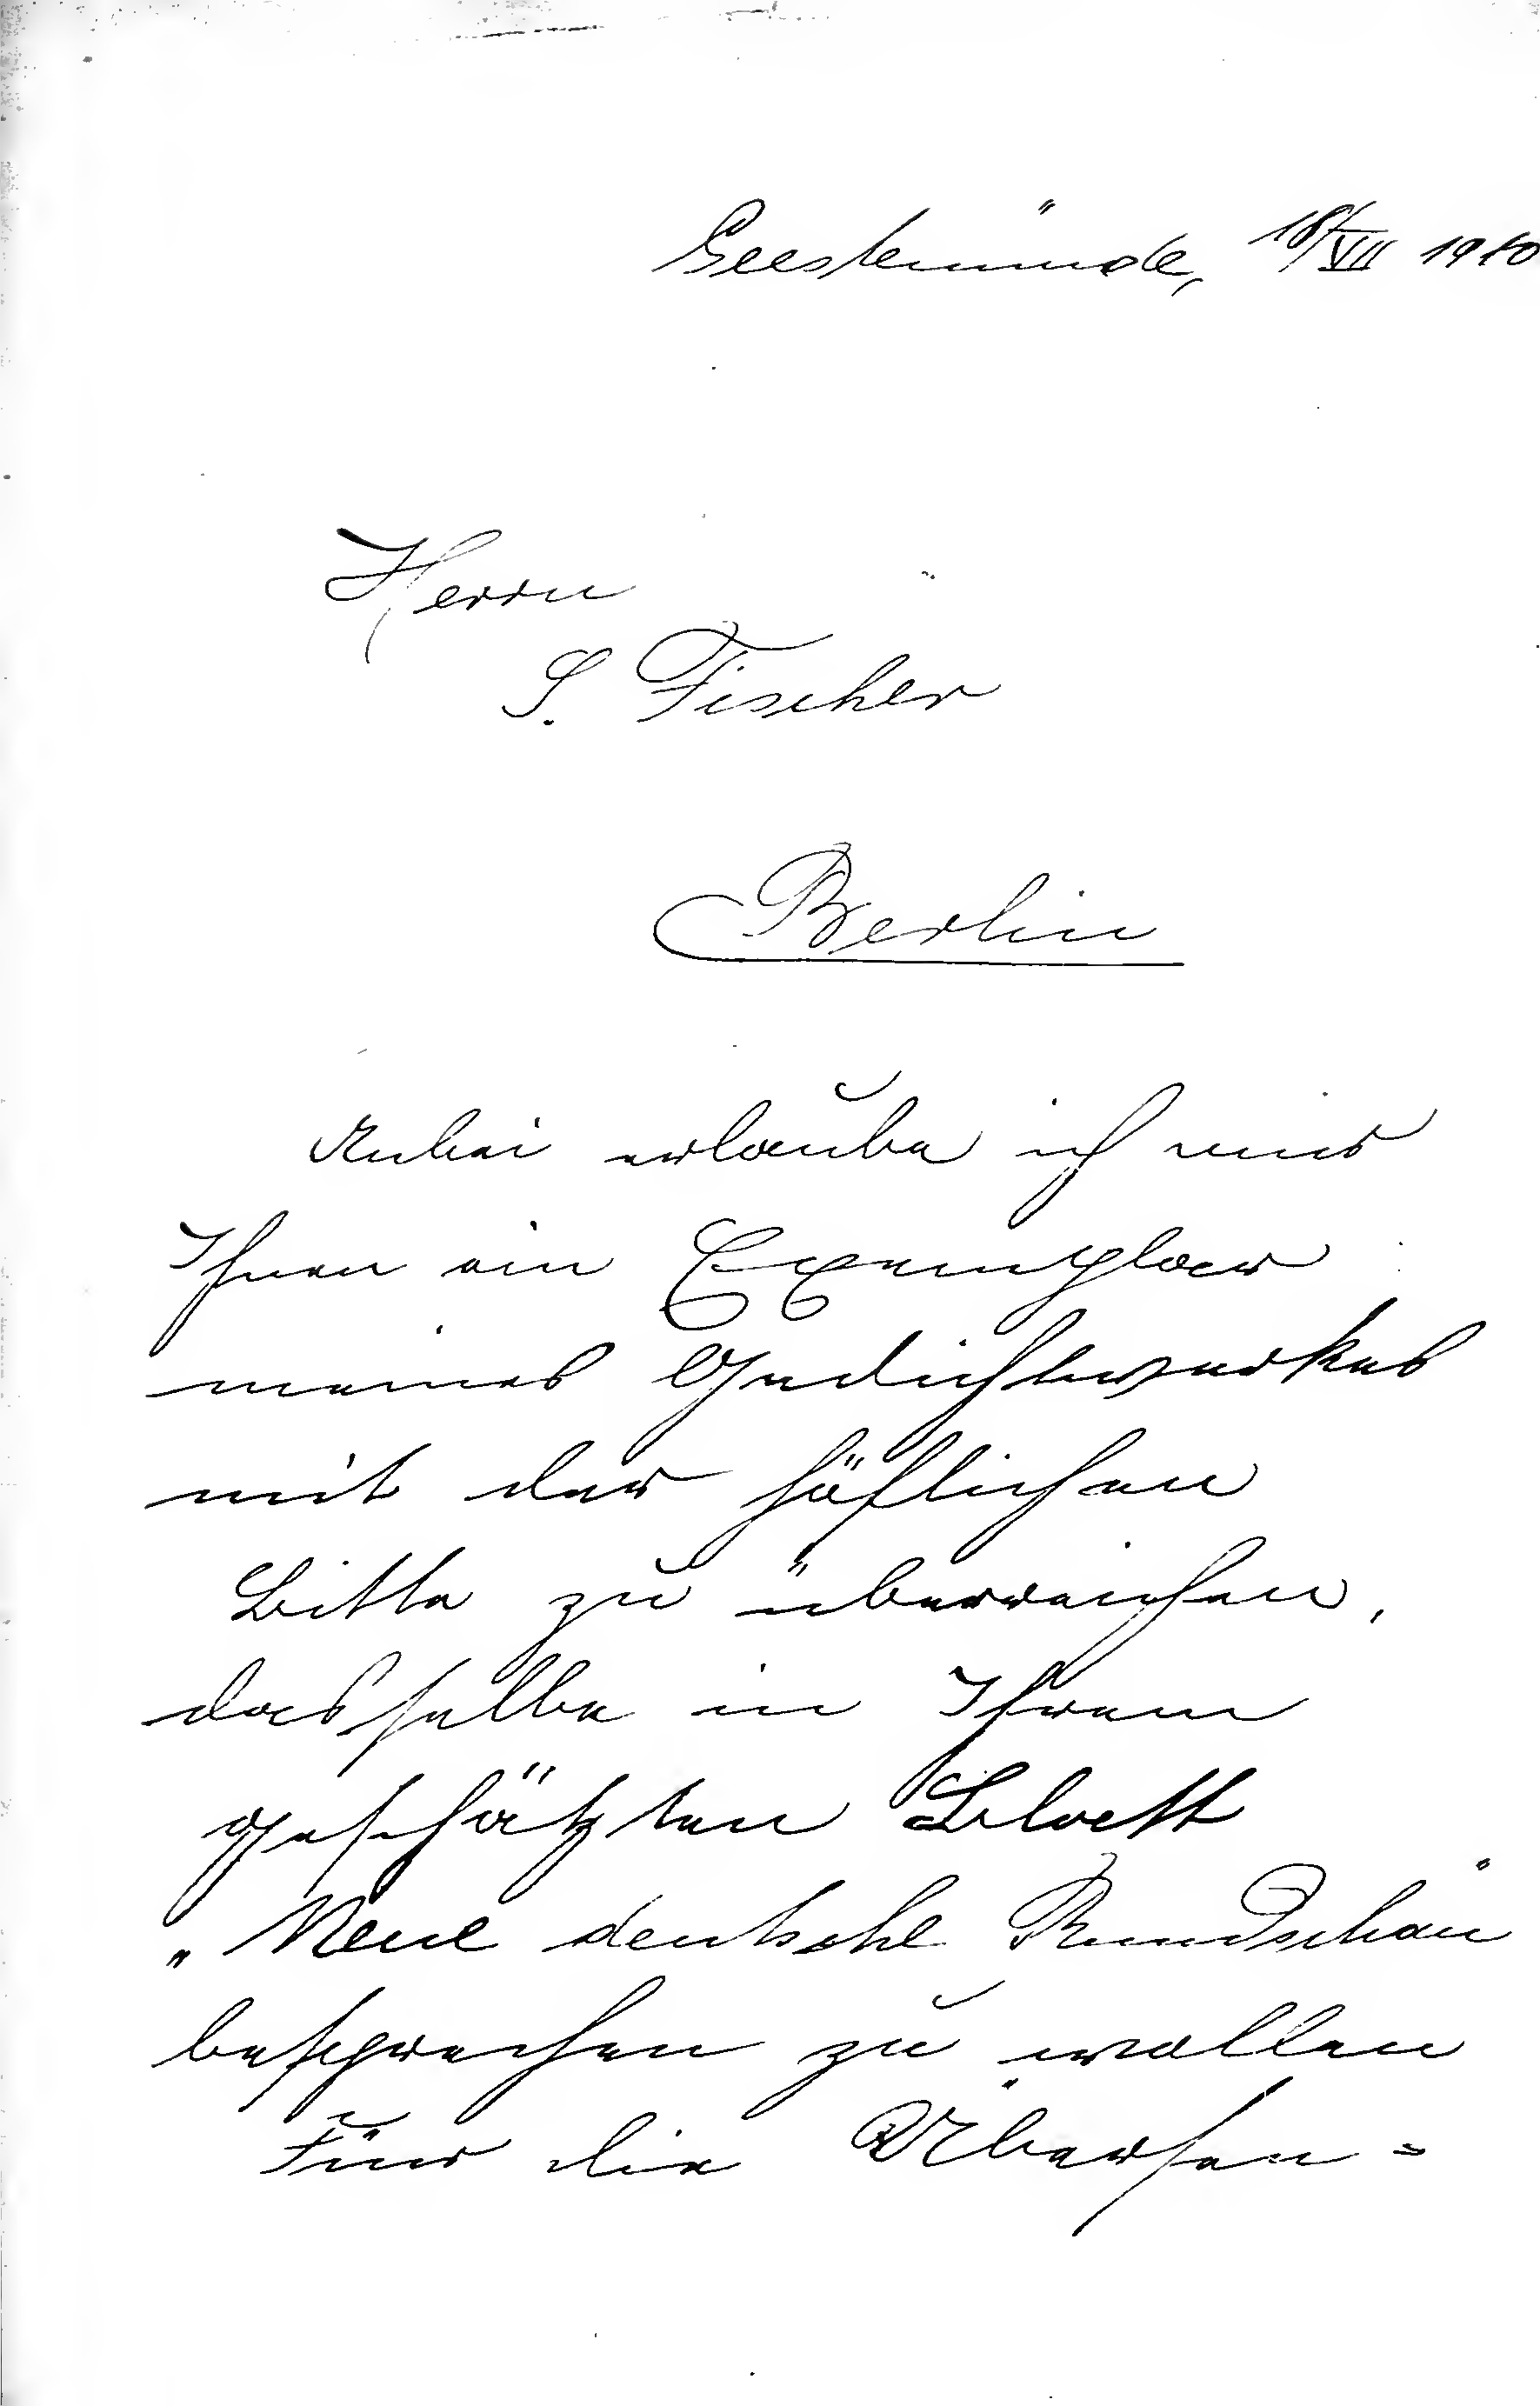 Geestemünde, 18/VII 1910
Herrn
S. Fischer
Berlin
Anbei erlaube ich mir
Ihnen ein Exemplar
meines Gedichtwerkes
mit der höflichen
Bitte zu überreichen,
dasselbe in Ihrem
geschätzten Blatt
„Neue deutsche Rundschau"
besprechen zu wollen
Für die Übersen=